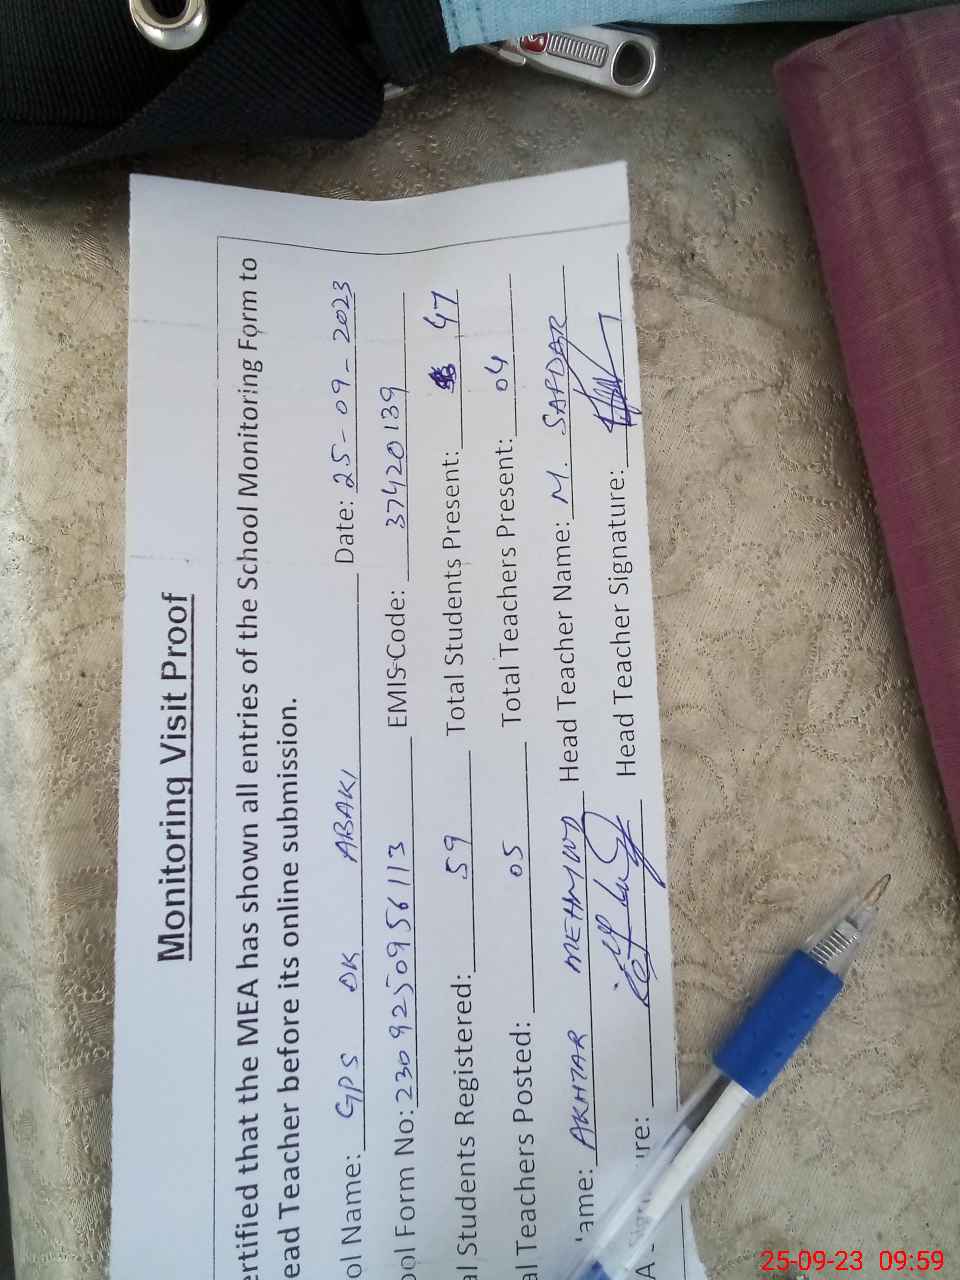 Monitoring Visit Proof
ertified that the MEA has shown all entries of the School Monitoring Form to
ead Teacher before its online submission.
ol Name: GPS DK ABAKI Date: 25-09-2023
ool Form No: 2309250956113 EMIS Code: 37420139
al Students Registered: 59 Total Students Present: 47
al Teachers Posted: 05 Total Teachers Present: 04
ame: AKHTAR MEHMOOD Head Teacher Name: M. SAFDAR
A ure: Head Teacher Signature:
25-09-23 09:59